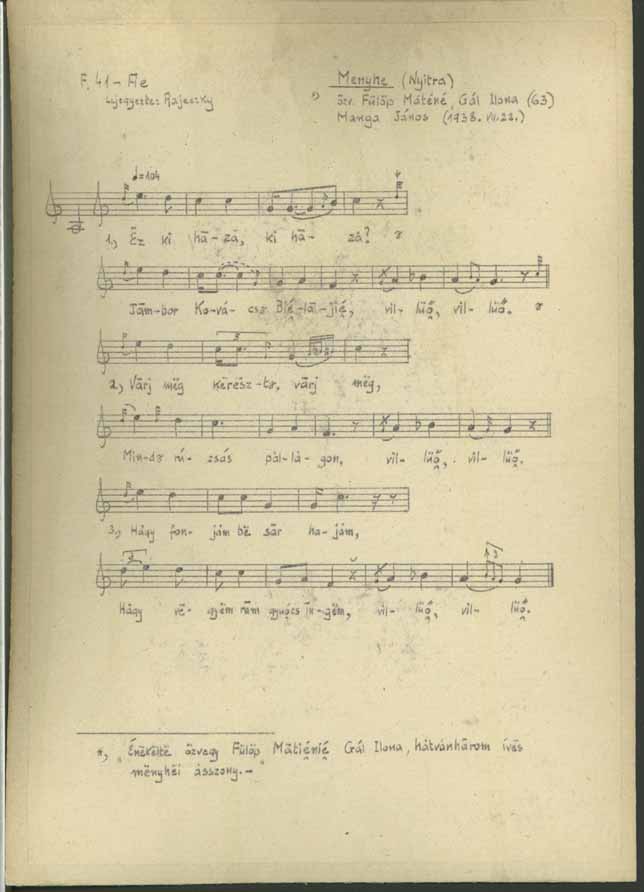 F. 41 - Ae
Lejegyezte: Rajeczky
Menyhe (Nyitra)
*) özv. Fülöp Máténé, Gál Ilona (63)
Manga János (1938. VII. 22.)
♩=104
1., Ëz ki hā-zá, ki hā- zá?
Jām-bor Ko-vá- csz Bië-lā-jië, vil- lüő, vil- lüő.
2., Várj mëg kërësz-tsr, várj mëg,
Min-ds rú- zsás pál-lá- gon, vil- lüő, vil- lüő.
3., Hágy fon- jám bë sár ha-jám,
Hágy vë- gyëm rám gyuócs in-gëm, vil- lüő, vil- lüő.
*, „Énëkëltë özvegy Fülöp Mātiénié Gál Ilona, hátvánhārom ívës
mënyhëi ásszony.-"